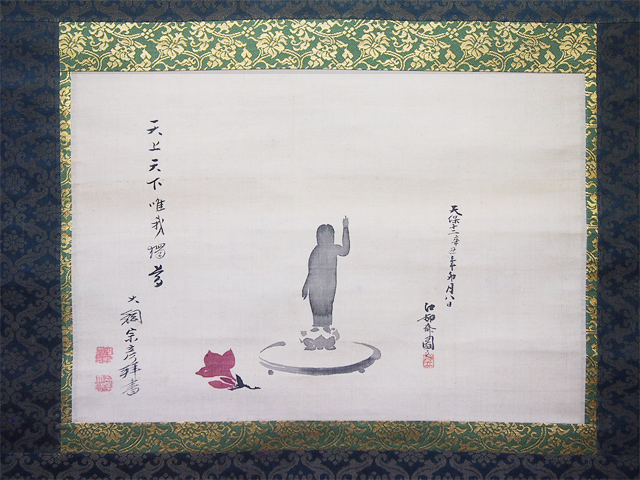 天保十二辛丑年卯月八日
斎圖
天上天下唯我獨尊
大綱宗彦拝書